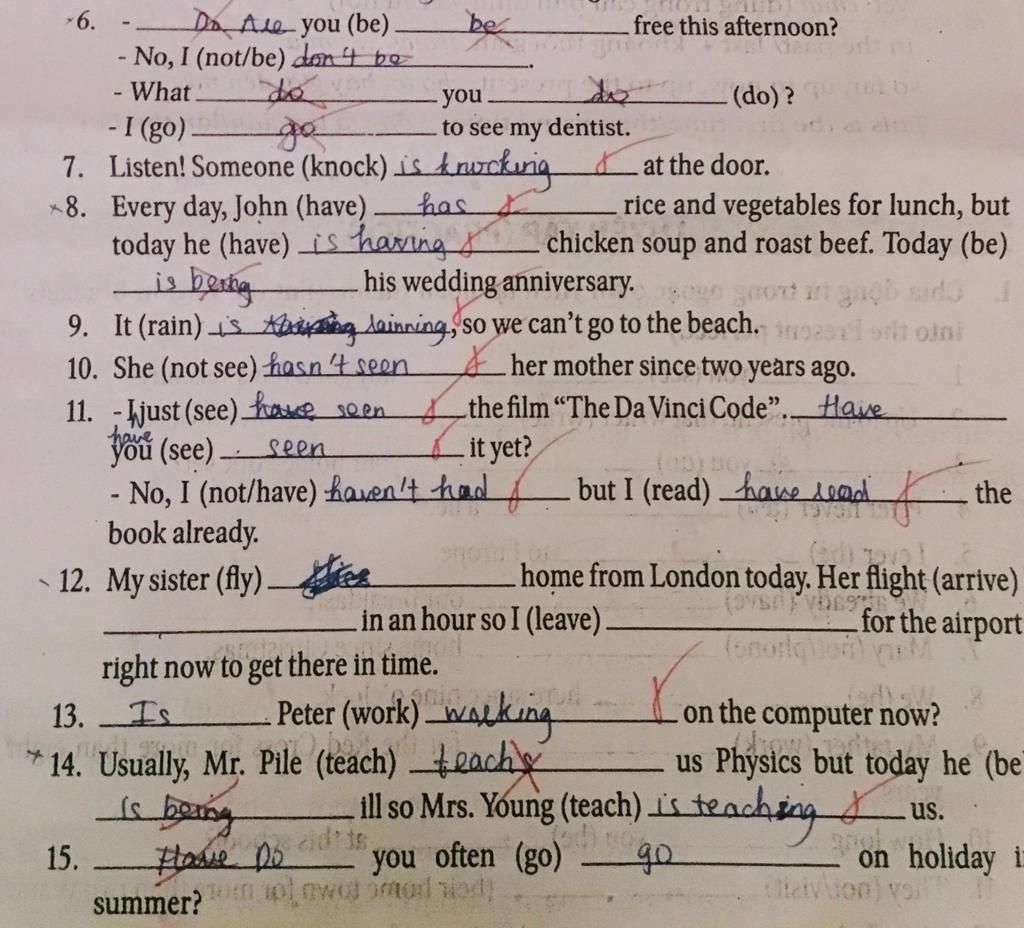 6. - Do Are you (be) be free this afternoon?
- No, I (not/be) don't be.
- What do you do (do) ?
- I (go) go to see my dentist.
7. Listen! Someone (knock) is knocking at the door.
*8. Every day, John (have) has rice and vegetables for lunch, but
today he (have) is having chicken soup and roast beef. Today (be)
is being his wedding anniversary.
9. It (rain) is rainning, so we can't go to the beach.
10. She (not see) hasn't seen her mother since two years ago.
11. - I just (see) have seen the film "The Da Vinci Code". Have
have
you (see) seen it yet?
- No, I (not/have) haven't had but I (read) have read the
book already.
12. My sister (fly) home from London today. Her flight (arrive)
in an hour so I (leave) for the airport
right now to get there in time.
13. Is Peter (work) working on the computer now?
*14. Usually, Mr. Pile (teach) teach us Physics but today he (be
is being ill so Mrs. Young (teach) is teaching us.
15. Have Do you often (go) go on holiday i
summer?